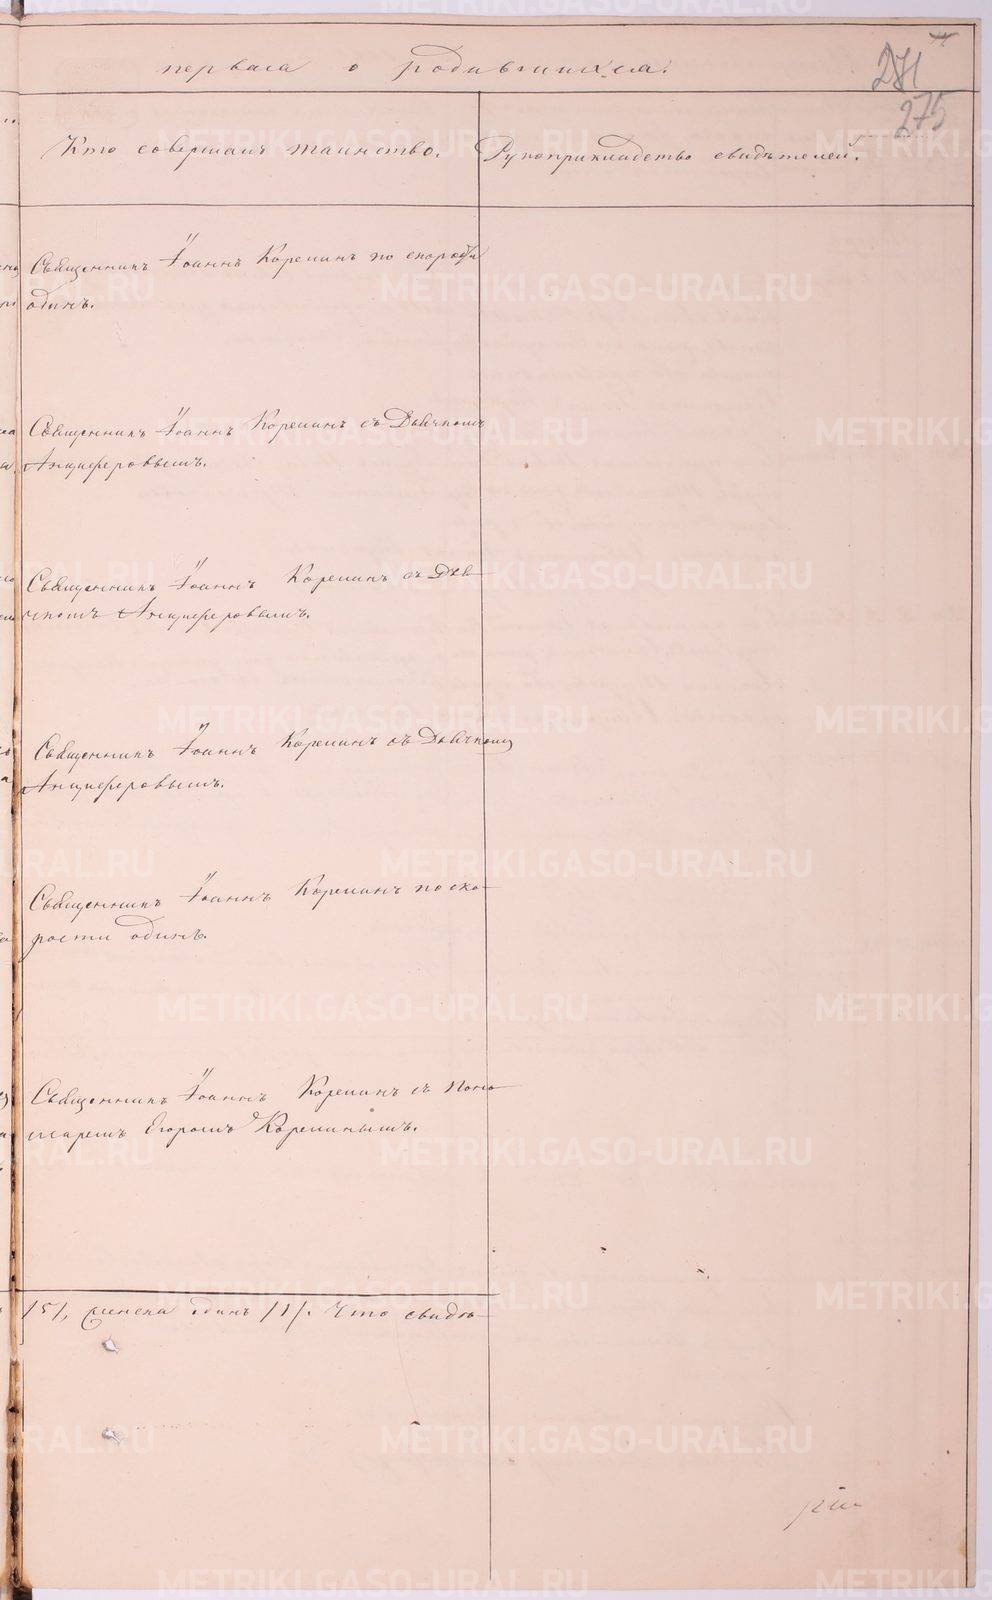 первая о родившихся.
271
275
Кто совершалъ таинство.
Рукоприкладство свидѣтелей.
Священникъ Іоаннъ Корепинъ по скорости
одинъ.
Священникъ Іоаннъ Корепинъ съ Дьячкомъ
Анциферовымъ.
Священникъ Іоаннъ Корепинъ съ Дья-
чкомъ Анциферовымъ.
Священникъ Іоаннъ Корепинъ съ Дьячкомъ
Анциферовымъ.
Священникъ Іоаннъ Корепинъ по ско-
рости одинъ.
Священникъ Іоаннъ Корепинъ съ Поно-
маремъ Егоромъ Корепинымъ.
/5/, женска одинъ /1/. Что свидѣ-
METRIKI.GASO-URAL.RU